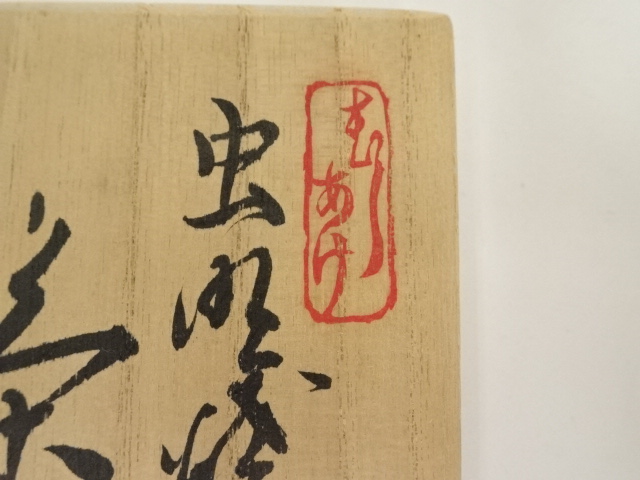 むしあけ
虫明焼
茶